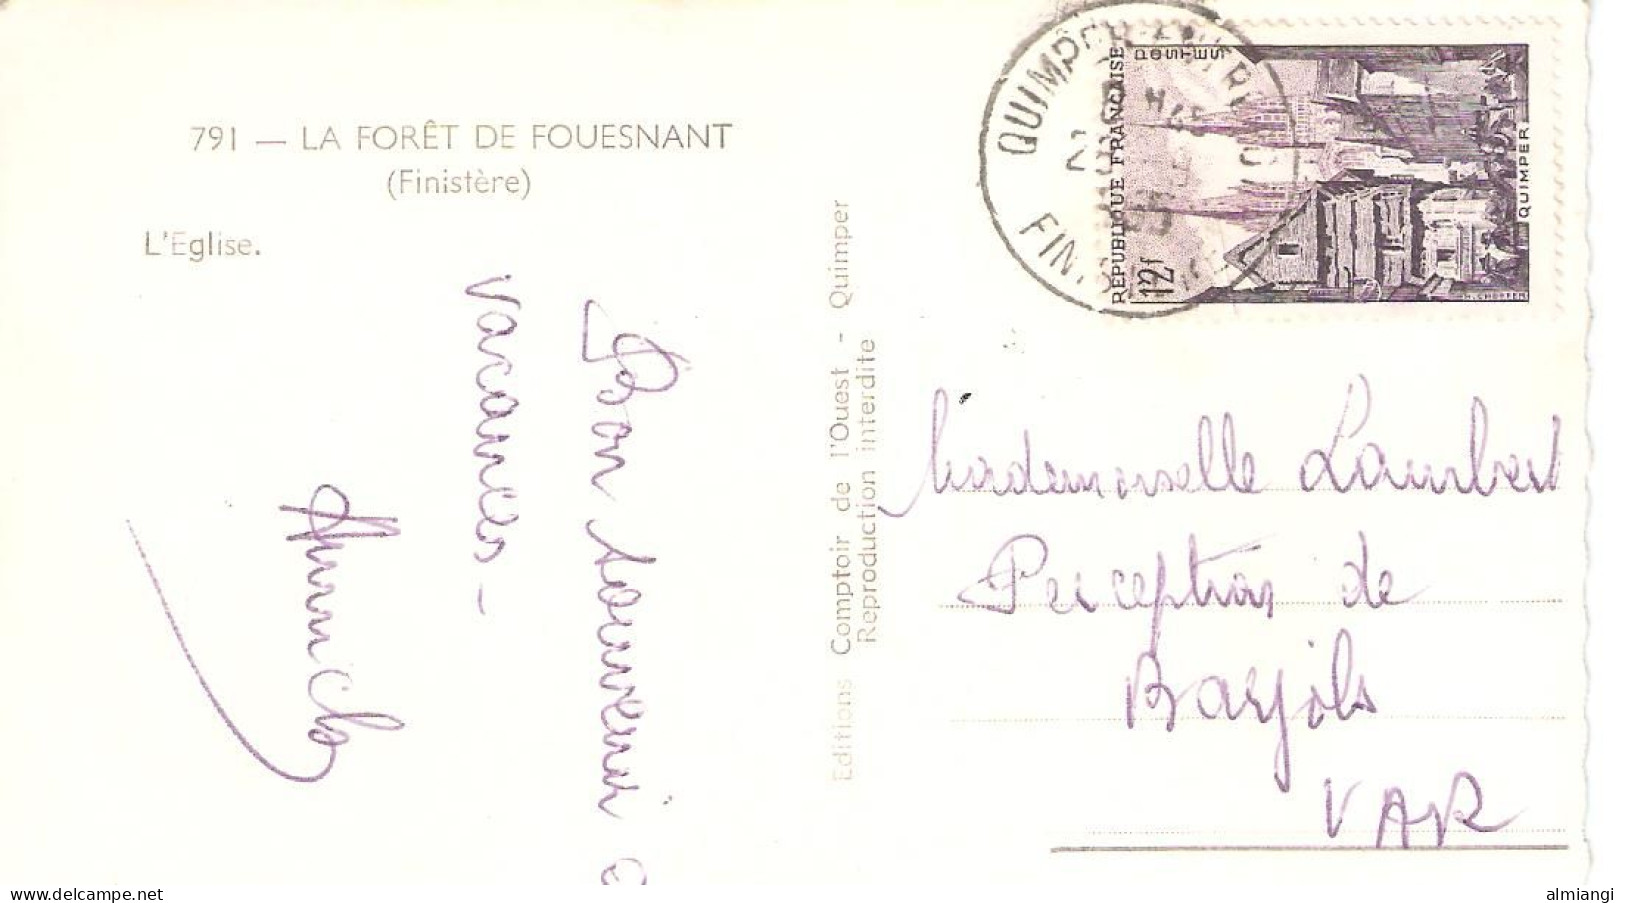 791 — LA FORÊT DE FOUESNANT
(Finistère)
L'Eglise.
Bon souvenir
vacances -
Editions Comptoir de l'Ouest - Quimper
Reproduction interdite
QUIMPER
FINISTÈRE
REPUBLIQUE FRANÇAISE
POSTES
12f
QUIMPER
Mademoiselle Lambert
Perception de
Barjols
VAR
delcampe.net
almiangi